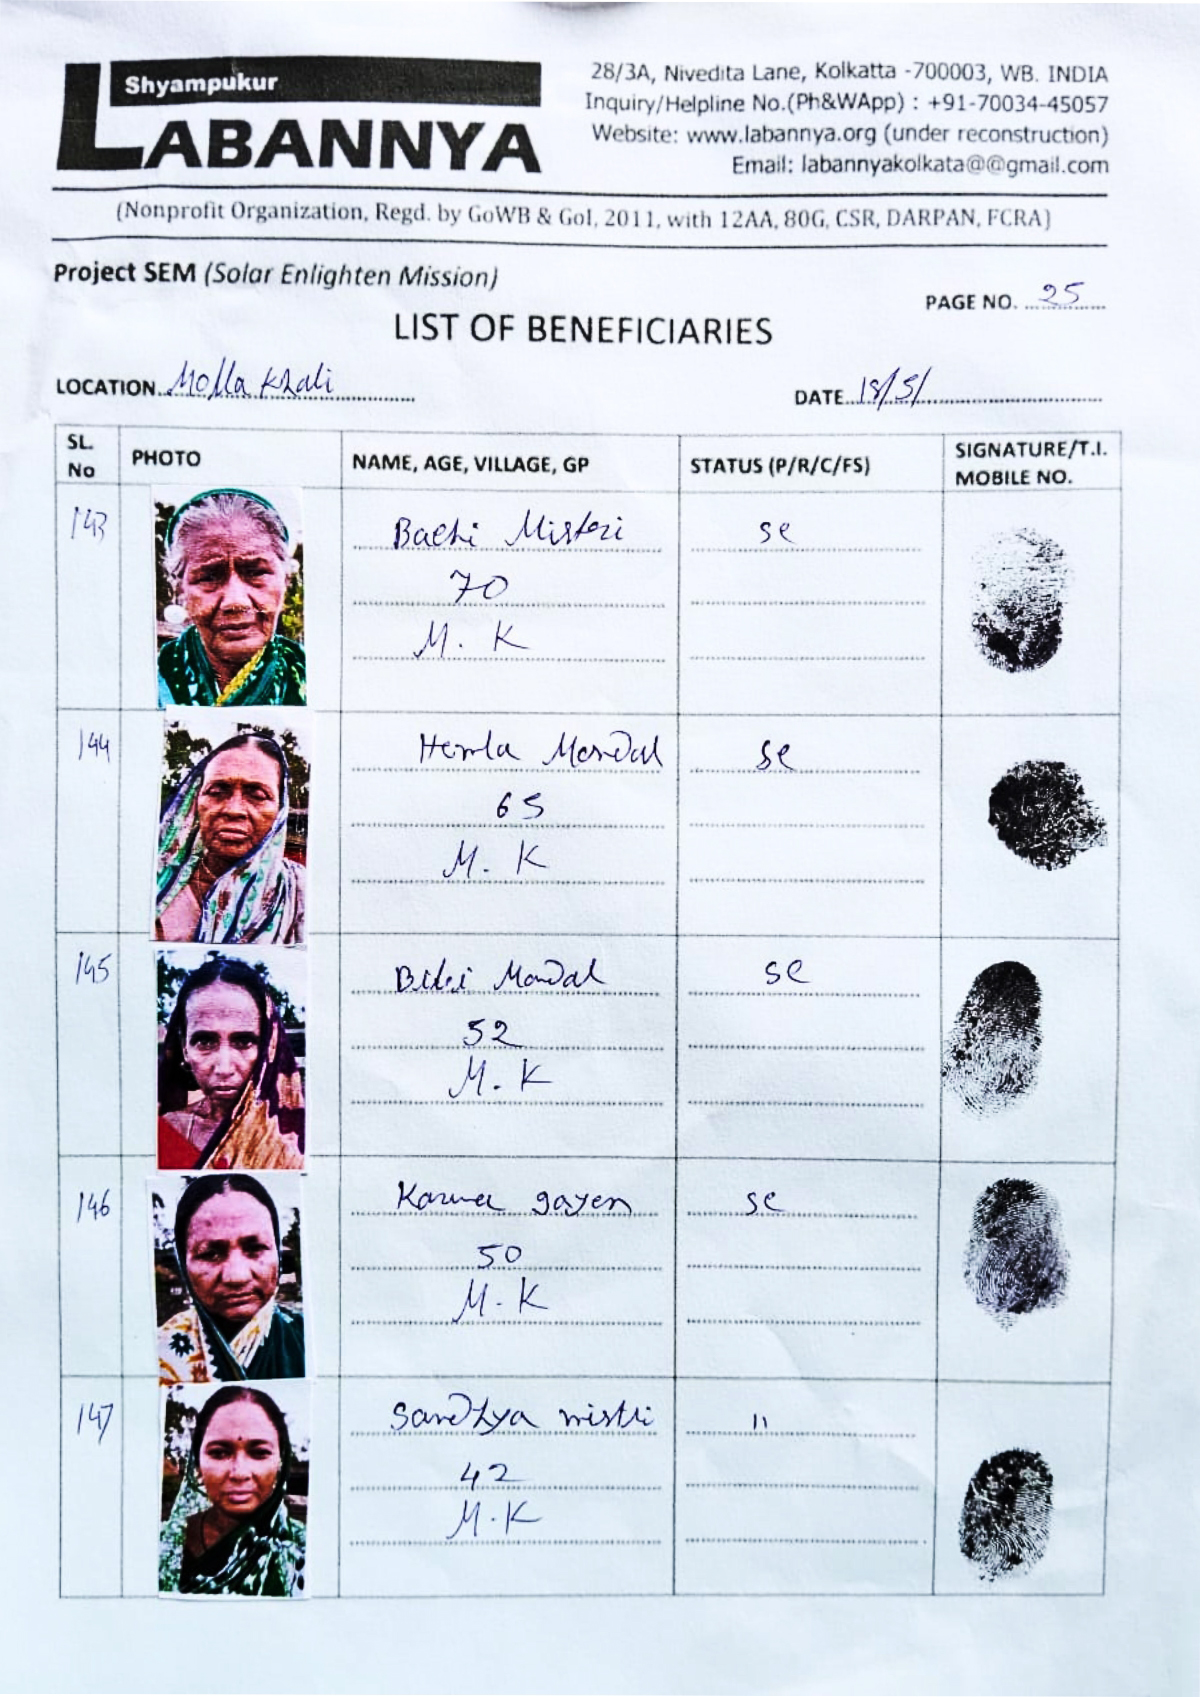 Shyampukur
LABANNYA
28/3A, Nivedita Lane, Kolkatta -700003, WB. INDIA
Inquiry/Helpline No.(Ph&WApp) : +91-70034-45057
Website: www.labannya.org (under reconstruction)
Email: labannyakolkata@@gmail.com
(Nonprofit Organization, Regd. by GoWB & GoI, 2011, with 12AA, 80G, CSR, DARPAN, FCRA)
Project SEM (Solar Enlighten Mission)
PAGE NO. 25
LIST OF BENEFICIARIES
LOCATION Molla Khali
DATE 18/5/
SL. No
PHOTO
NAME, AGE, VILLAGE, GP
STATUS (P/R/C/FS)
SIGNATURE/T.I.
MOBILE NO.
143
Misteri
sc
70
M. K
144
Mondal
sc
65
M. K
145
Mondal
sc
52
M. K
146
gayen
sc
50
M. K
147
Sandhya mistri
"
42
M. K